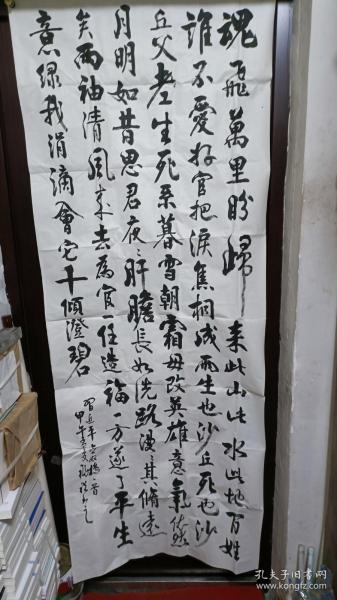 魂飛萬里盼歸來此山此水此地百姓
誰不愛好官把淚焦桐成雨生也沙丘死也沙
丘父老生死系暮雪朝霜毋改英雄意氣依然
月明如昔思君夜夜肝膽長如洗路漫漫其脩遠
矣兩袖清風來去為官一任造福一方遂了平生
意綠我涓滴會它千頃澄碧
習近平念奴嬌一首
甲午
孔夫子旧书网